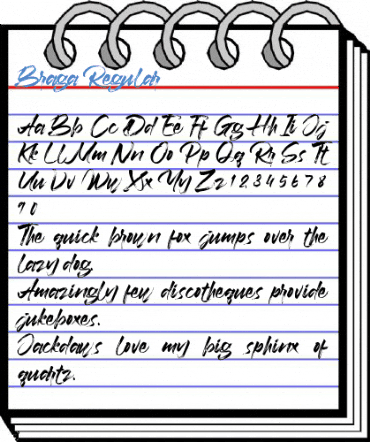 Braga Regular
Aa Bb Cc Dd Ee Ff Gg Hh Ii Jj
Kk Ll Mm Nn Oo Pp Qq Rr Ss Tt
Uu Vv Ww Xx Yy Zz 1 2 3 4 5 6 7 8
9 0
The quick brown fox jumps over the
lazy dog.
Amazingly few discotheques provide
jukeboxes.
Jackdaws love my big sphinx of
quartz.